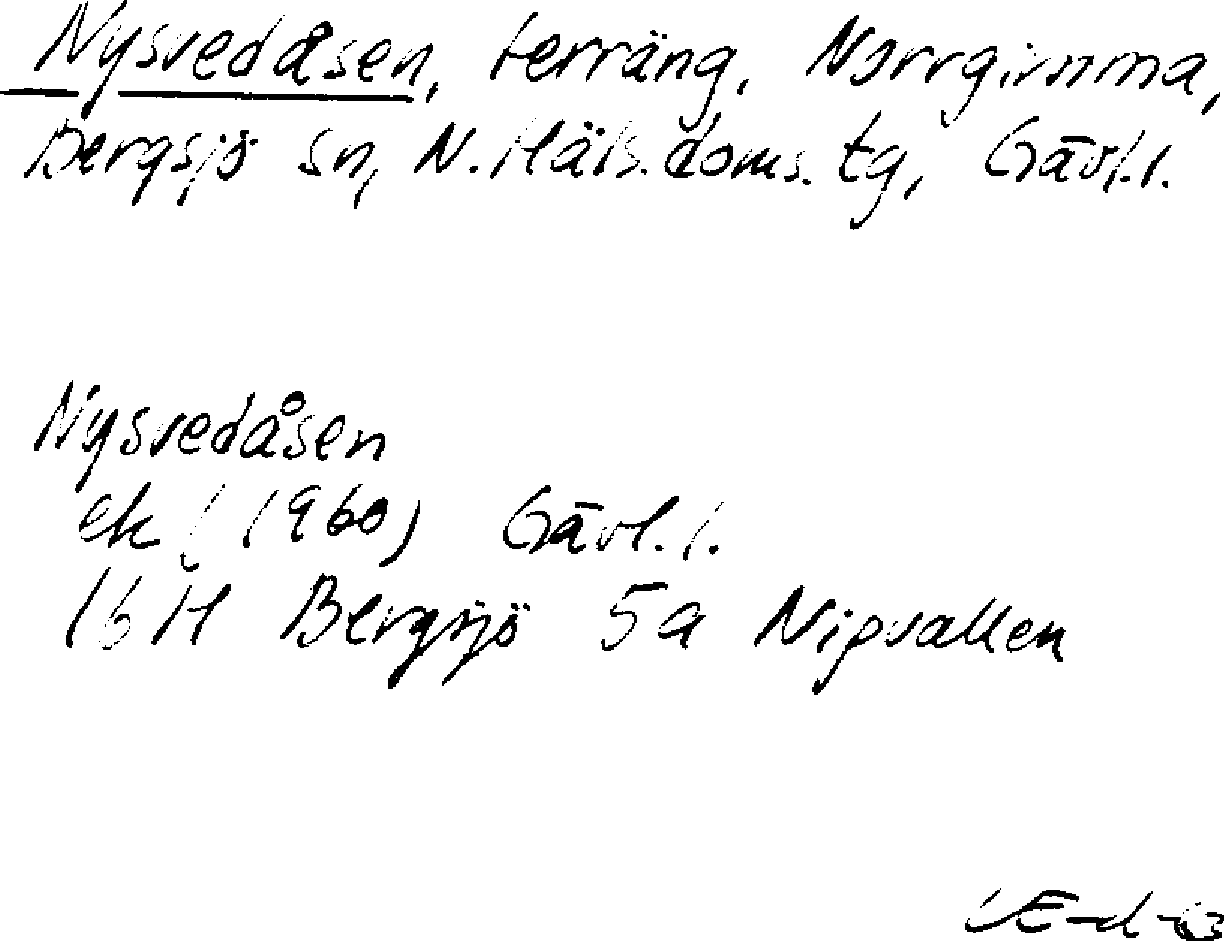 Nysvedåsen, terräng, Norrgimma,
Bergsjö sn, N. Häls. doms. tg, Gävl. l.
Nysvedåsen
ek (1960) Gävl. l.
16H Bergsjö 5a Nipvallen